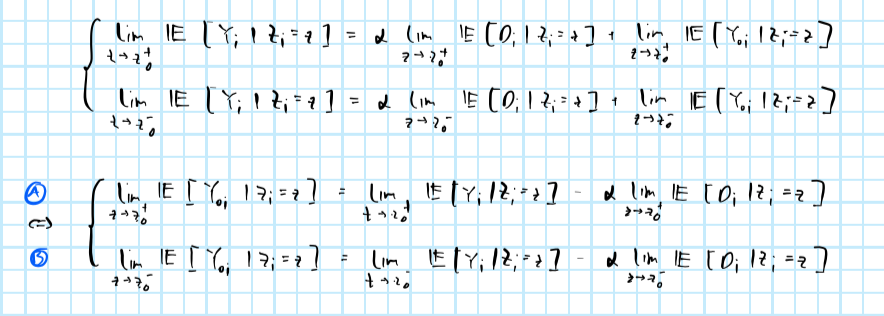 { lim_{z→z₀⁺} 𝔼[Y_i | z_i = z] = α lim_{z→z₀⁺} 𝔼[D_i | z_i = z] + lim_{z→z₀⁺} 𝔼[Y_{0i} | z_i = z]
{ lim_{z→z₀⁻} 𝔼[Y_i | z_i = z] = α lim_{z→z₀⁻} 𝔼[D_i | z_i = z] + lim_{z→z₀⁻} 𝔼[Y_{0i} | z_i = z]
Ⓐ { lim_{z→z₀⁺} 𝔼[Y_{0i} | z_i = z] = lim_{z→z₀⁺} 𝔼[Y_i | z_i = z] - α lim_{z→z₀⁺} 𝔼[D_i | z_i = z]
⇔
Ⓑ { lim_{z→z₀⁻} 𝔼[Y_{0i} | z_i = z] = lim_{z→z₀⁻} 𝔼[Y_i | z_i = z] - α lim_{z→z₀⁻} 𝔼[D_i | z_i = z]